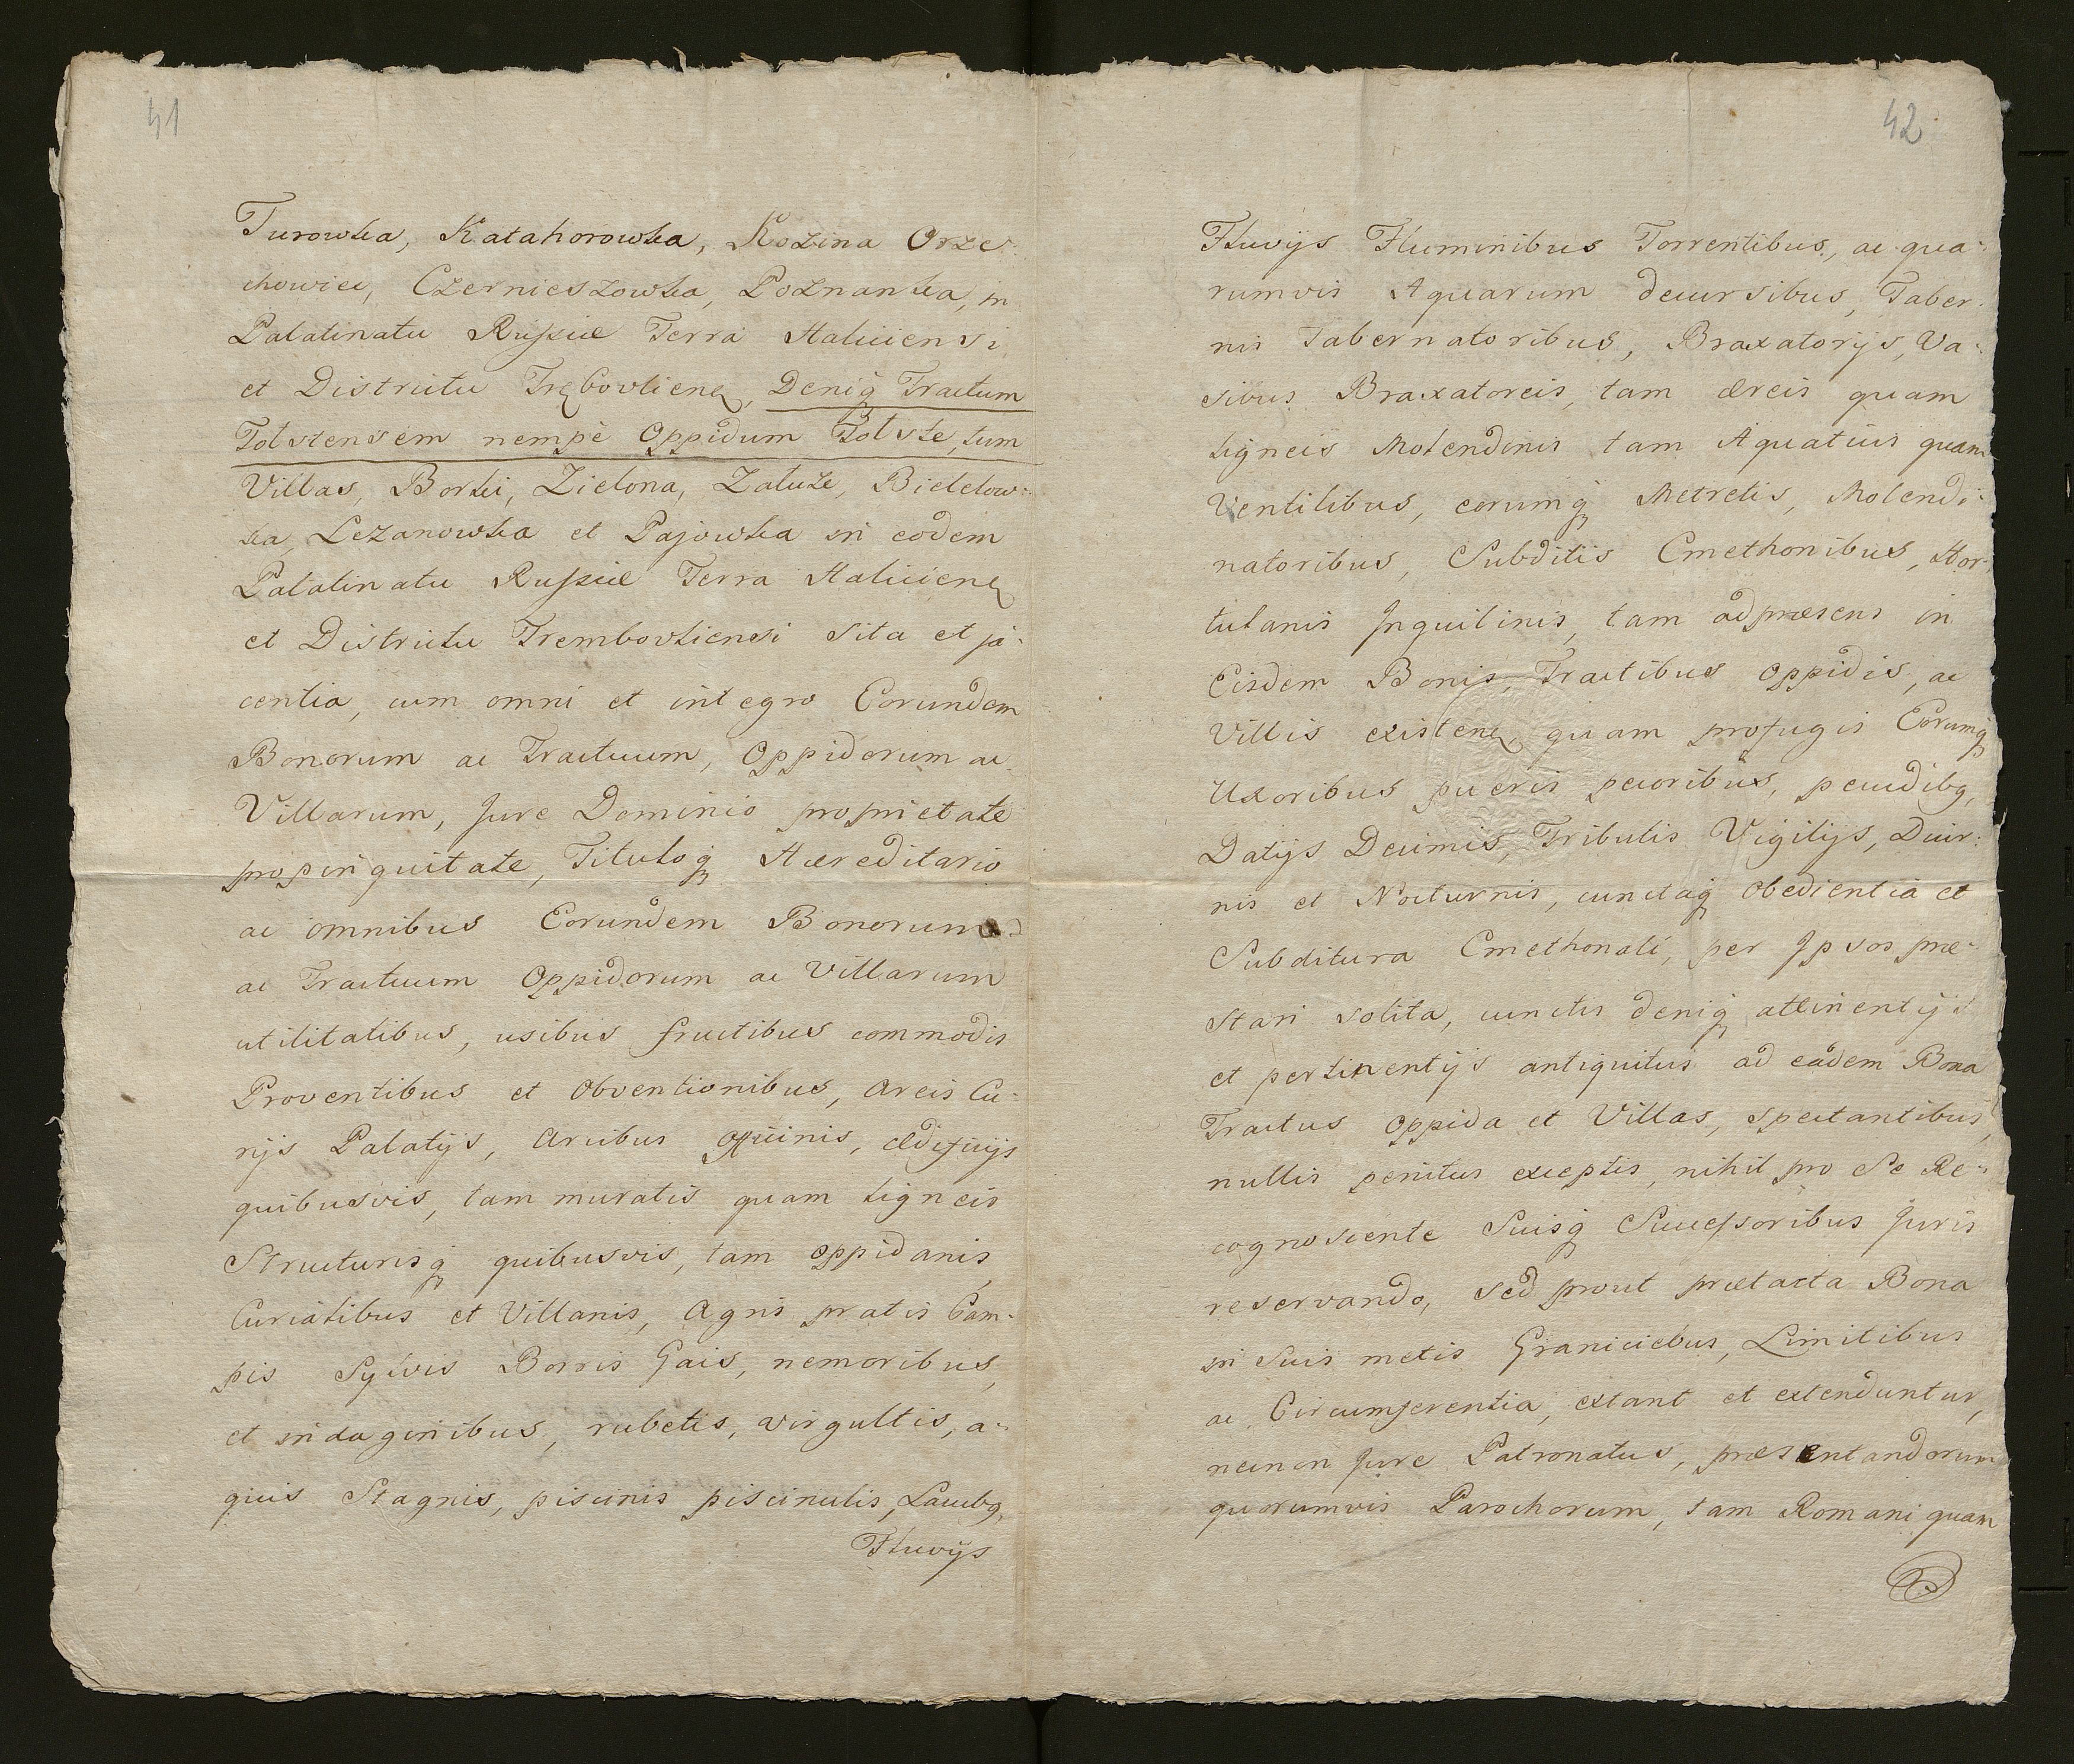 41
Turowka, Katahorowka, Kozina Orze-
chowiec, Czernieszowka, Poznanka, in
Palatinatu Russiæ Terra Haliciensi
et Districtu Trębovliens, Deniq Tractum
Tolstensem nempè Oppidum Tolste, tum
Villas, Borki, Zielona, Zaluże, Bielelow-
ka, Lezanowka et Pajowka in eodem
Palatinatu Russiæ Terra Haliciens
et Districtu Trembovliensi sita et ja-
centia, cum omni et integro Eorundem
Bonorum ac Tractuum, Oppidorum ac
Villarum, Jure Dominio proprietate
propinquitate, Tituloq Hæreditario
ac omnibus Eorundem Bonorum
ac Tractuum Oppidorum ac Villarum
utilitatibus, usibus fructibus commodis
Proventibus et Obventionibus, Areis Cu-
rijs Palatijs, Arcibus officinis, ædificijs
quibusvis, tam muratis quam ligneis
Structurisq quibusvis, tam oppidanis,
Curialibus et Villanis, Agris pratis Cam-
pis Sylvis Borris Gais, nemoribus,
et indaginibus, rubetis, virgultis, a-
quis Stagnis, piscinis piscinulis, Lacubq,
Fluvijs
42
Fluvijs Fluminibus Torrentibus, ac qua-
rumvis Aquarum decursibus, Taber-
nis Tabernatoribus, Braxatorijs, Va-
sibus Braxatoreis, tam æreis quam
ligneis Molendinis tam Aquaticis quam
Ventilibus, eorumq Metretis, Molendi-
natoribus, Subditis Cmethonibus, Hor-
tulanis Inquilinis, tam ad præsens in
Eisdem Bonis, Tractibus Oppidis, ac
Villis existens quam profugis Eorumq
Uxoribus pueris pecoribus, pecudibq,
Datijs Decimis, Tributis Vigilijs, Diur-
nis et Nocturnis, cunctaq obedientia et
Subditura Cmethonali, per Ipsos præ-
stari solita, cunctis deniq attinentijs
et pertinentijs antiquitus ad eadem Bona
Tractus Oppida et Villas, spectantibus,
nullis penitus exceptis, nihil pro Se Re-
cognoscente Suisq Successoribus Juris
reservando, sed prout prætacta Bona
in suis metis Graniciebus, Limitibus
ac Circumferentia, extant et extenduntur,
necnon Jure Patronatus, præsentandorum
quorumvis Parochorum, tam Romani quam